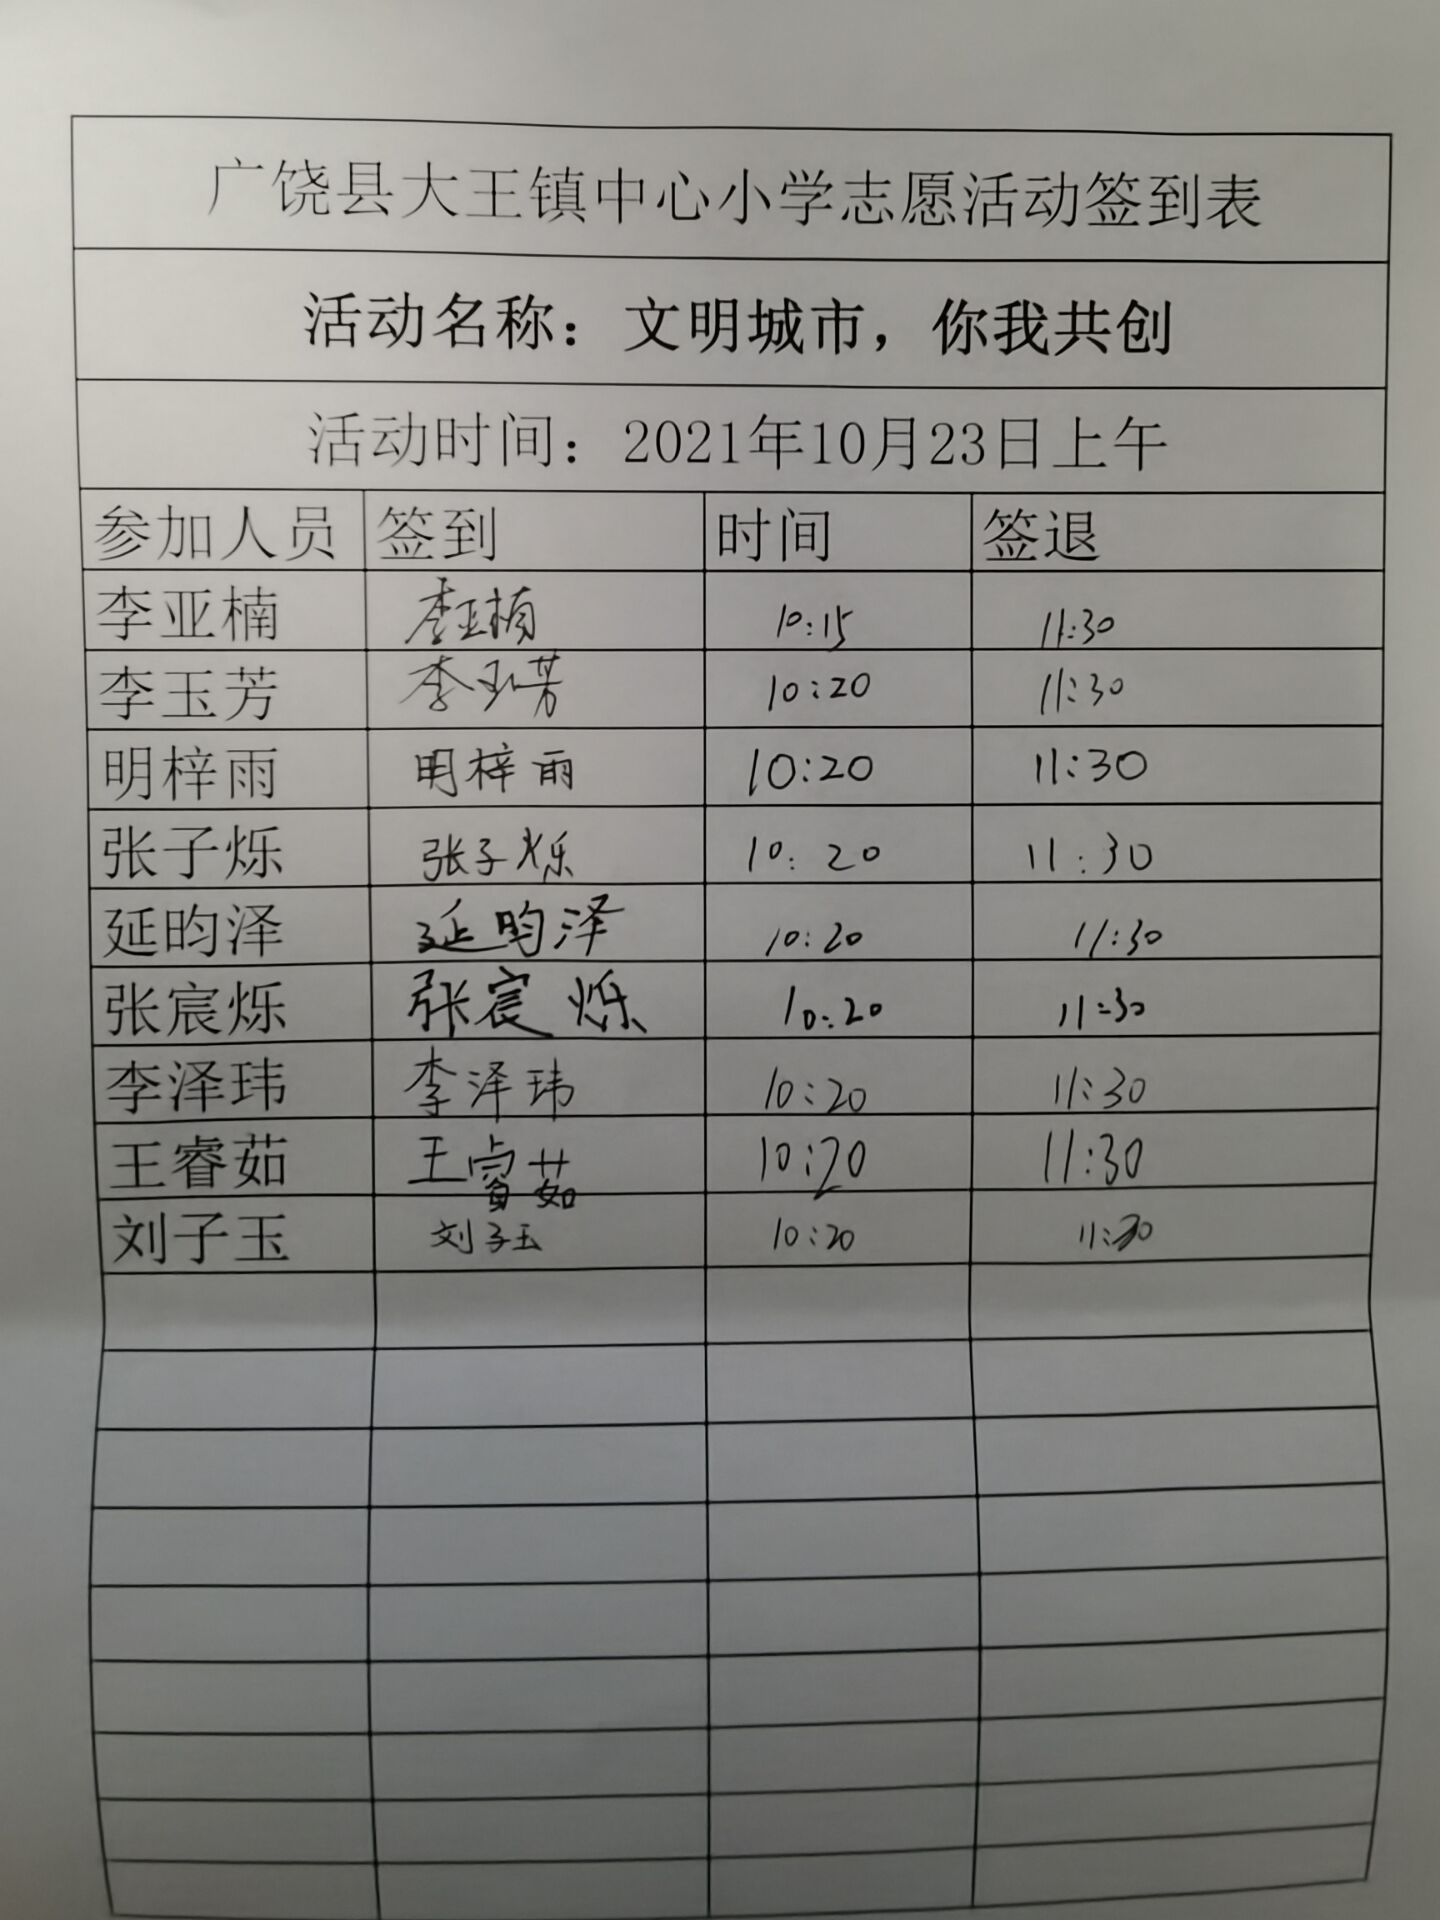 广饶县大王镇中心小学志愿活动签到表
活动名称：文明城市，你我共创
活动时间：2021年10月23日上午
参加人员 签到 时间 签退
李亚楠 李亚楠 10:15 11:30
李玉芳 李玉芳 10:20 11:30
明梓雨 明梓雨 10:20 11:30
张子烁 张子烁 10:20 11:30
延昀泽 延昀泽 10:20 11:30
张宸烁 张宸烁 10:20 11:30
李泽玮 李泽玮 10:20 11:30
王睿茹 王睿茹 10:20 11:30
刘子玉 刘子玉 10:20 11:30